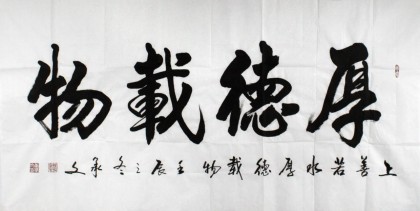 厚德載物
上善若水厚德载物壬辰之冬承文